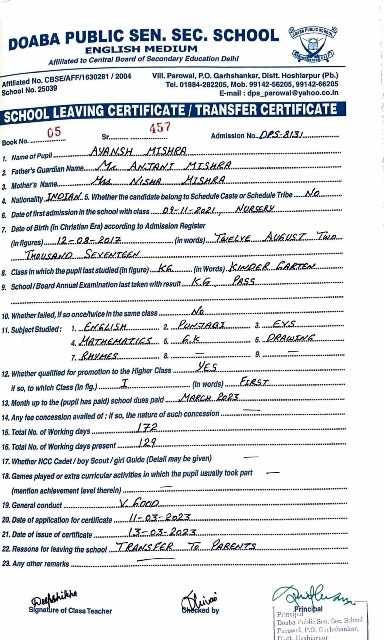 DOABA PUBLIC SEN. SEC. SCHOOL
ENGLISH MEDIUM
Affiliated to Central Board of Secondary Education Delhi
Affiliated No. CBSE/AFF/1630281 / 2004
School No. 25039
Vill. Parowal, P.O. Garhshankar, Distt. Hoshiarpur (Pb.)
Tel. 01884-282205, Mob. 99142-56205, 99142-66205
E-mail : dps_parowal@yahoo.co.in
SCHOOL LEAVING CERTIFICATE / TRANSFER CERTIFICATE
Book No. 05 Sr. 457 Admission No. DPS-8131
1. Name of Pupil AYANSH MISHRA
2. Father's Guardian Name Mr. ANJANI MISHRA
3. Mother's Name Mrs. NISHA MISHRA
4. Nationality INDIAN 5. Whether the candidate belong to Schedule Caste or Schedule Tribe NO
6. Date of first admission in the school with class 09-11-2021, NURSERY
7. Date of Birth (in Christian Era) according to Admission Register
(In figures) 12-08-2017 (in words) TWELVE AUGUST TWO
THOUSAND SEVENTEEN
8. Class in which the pupil last studied (In figure) KG (in Words) KINDER GARTEN
9. School / Board Annual Examination last taken with result K.G PASS
10. Whether failed, if so once/twice in the same class NO
11. Subject Studied : 1. ENGLISH 2. PUNJABI 3. EVS
4. MATHEMATICS 5. G.K 6. DRAWING
7. RHYMES 8. — 9. —
12. Whether qualified for promotion to the Higher Class YES
if so, to which Class (In fig.) I (In words) FIRST
13. Month up to the (pupil has paid) school dues paid MARCH 2023
14. Any fee concession availed of : if so, the nature of such concession —
16. Total No. of Working days 172
16. Total No. of Working days present 129
17. Whether NCC Cadet / boy Scout / girl Guide (Detail may be given) —
18. Games played or extra curricular activities in which the pupil usually took part —
(mention achievement level therein) —
19. General conduct V. GOOD
20. Date of application for certificate 11-03-2023
21. Date of issue of certificate 13-03-2023
22. Reasons for leaving the school TRANSFER TO PARENTS
23. Any other remarks —
Signature of Class Teacher Checked by Principal
Principal
Doaba Public Sen. Sec. School
Parowal, P.O. Garhshankar,
Distt. Hoshiarpur